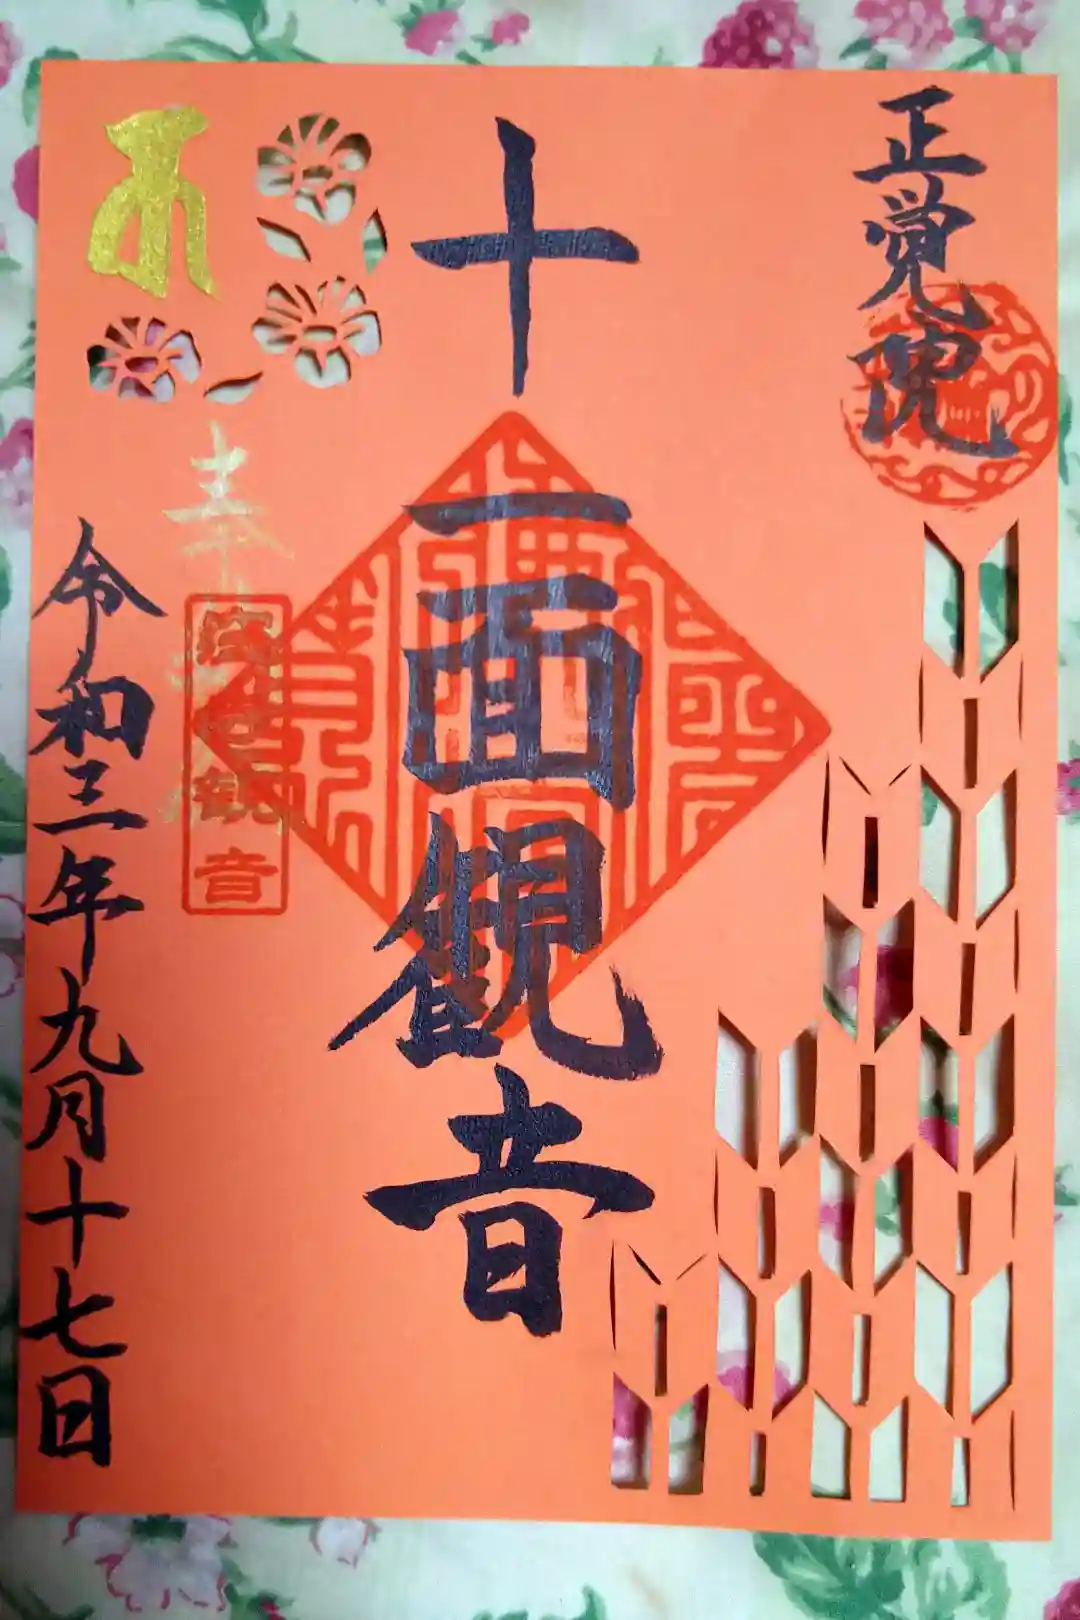 正覚院
十一面観音
奉拝
令和三年九月十七日